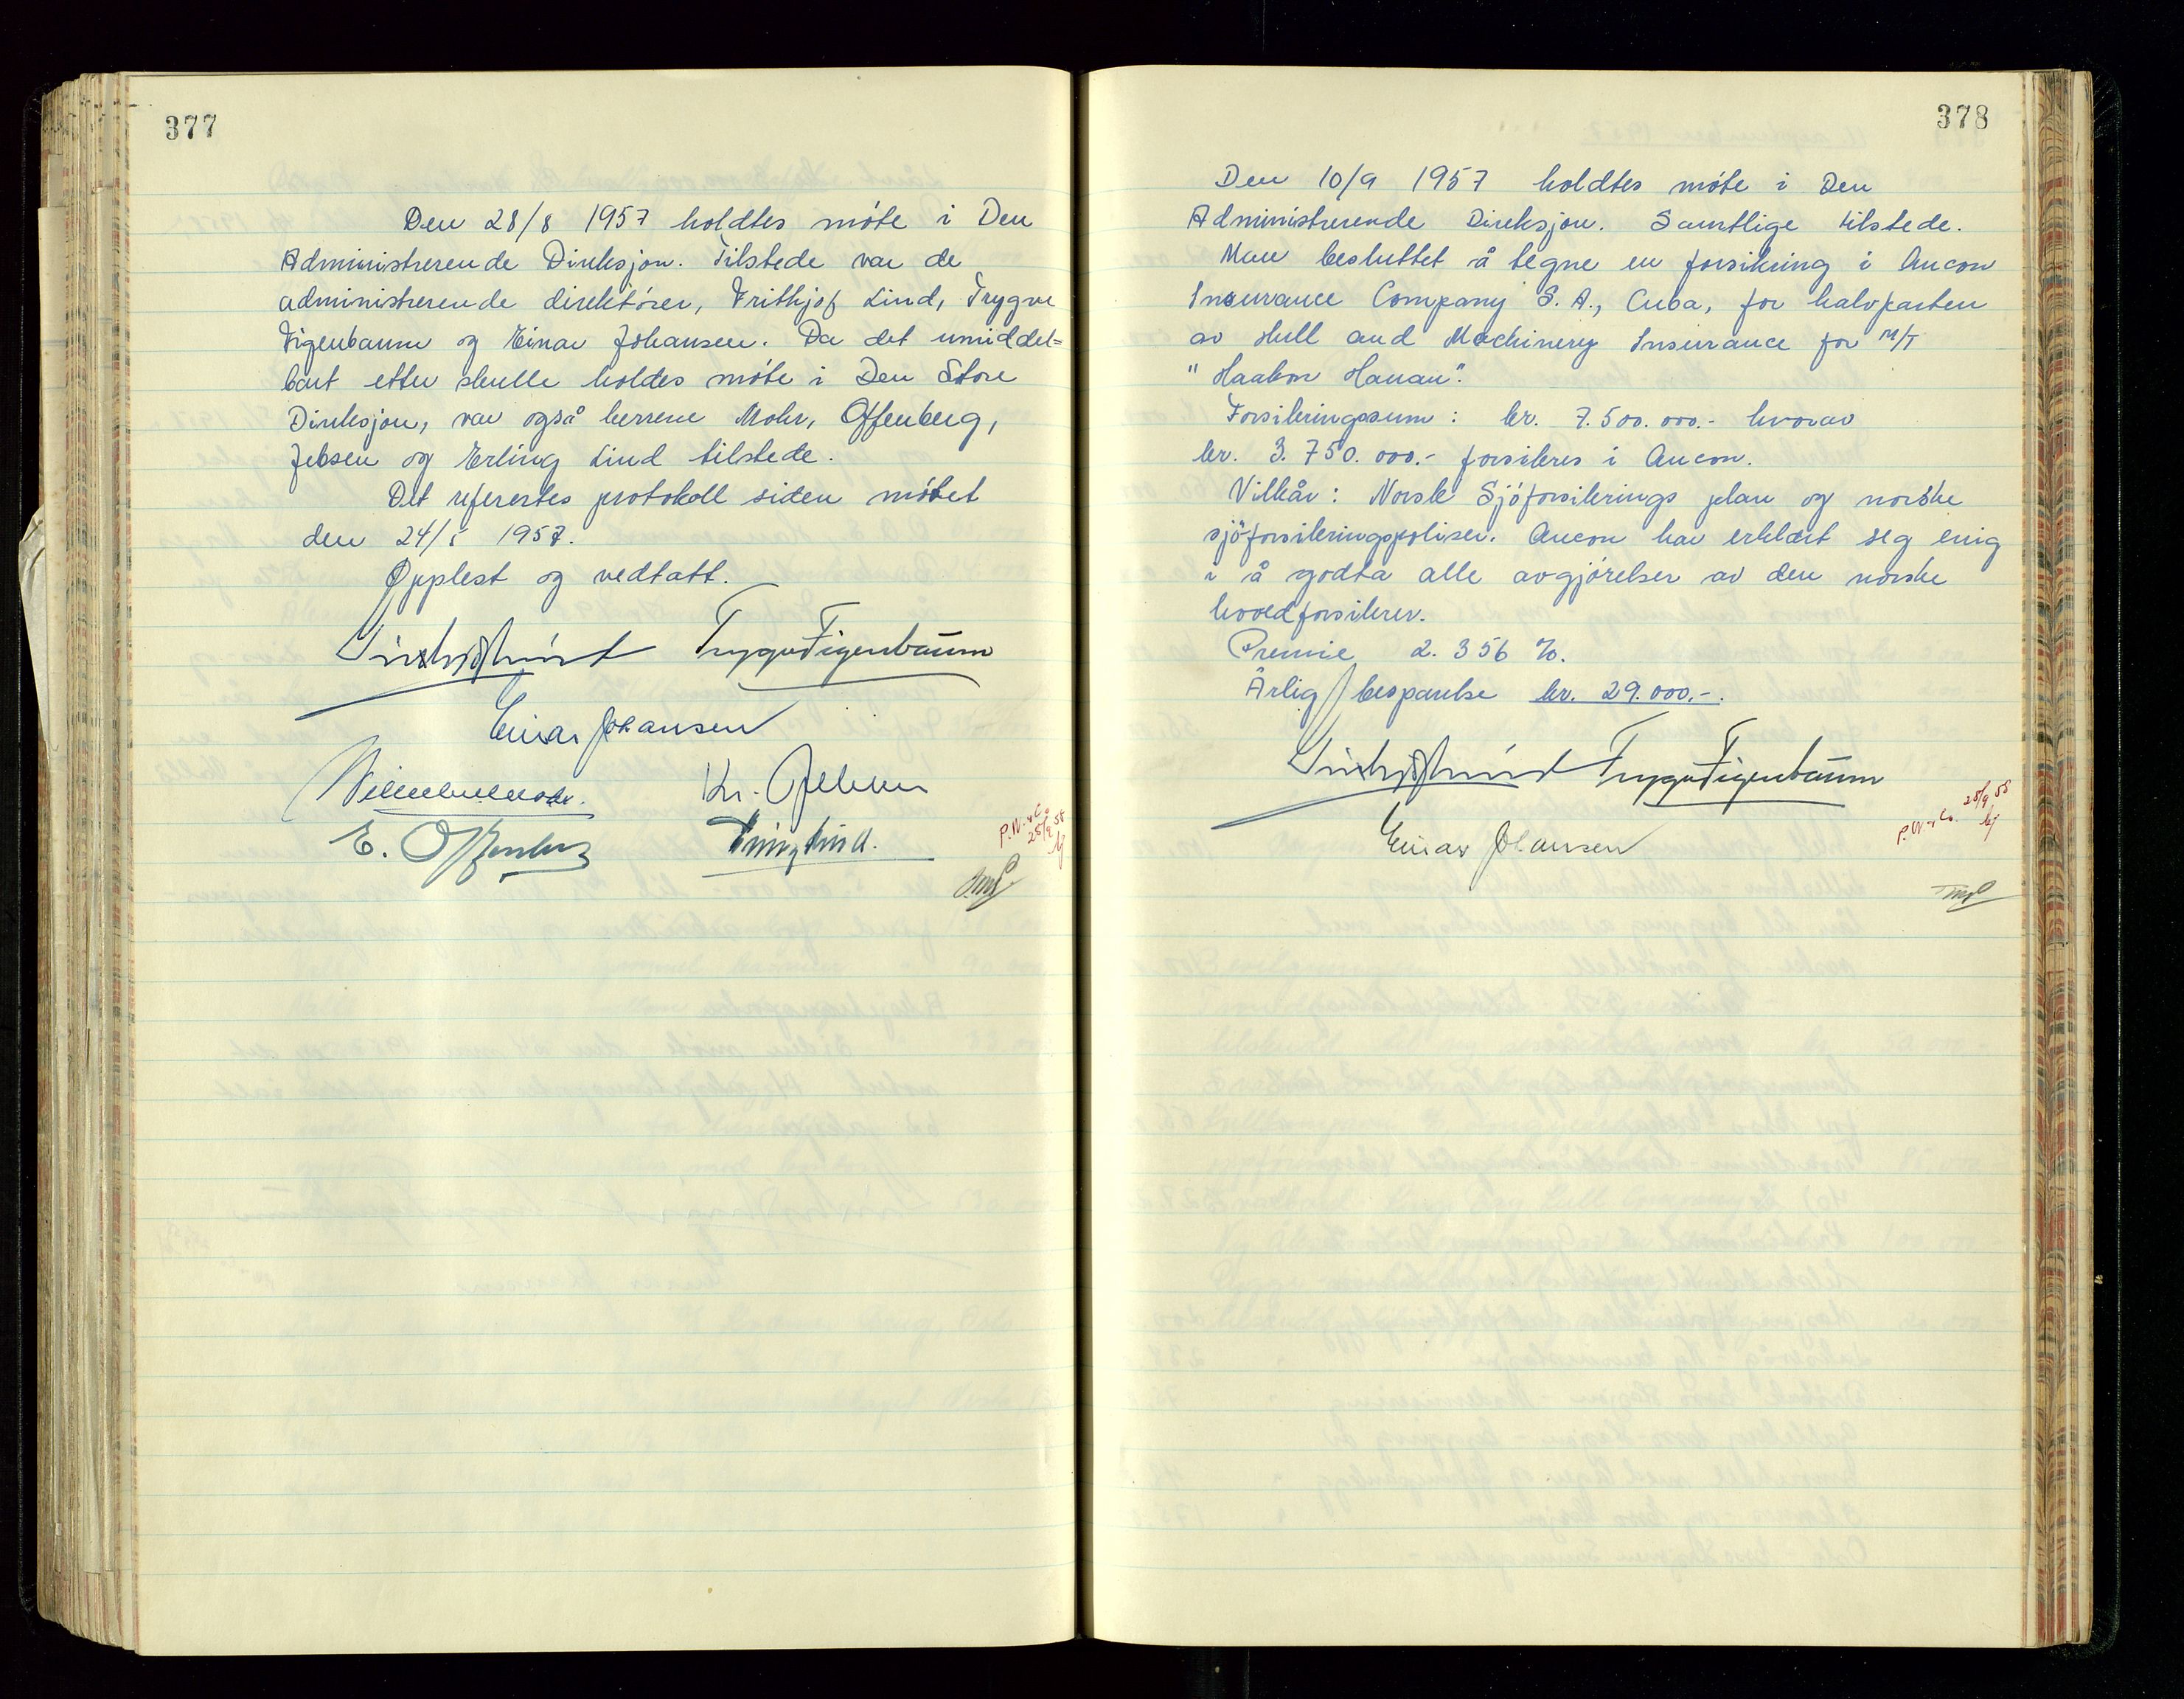 377
Den 28/8 1957 holdtes møte i Den
Administrerende Direksjon. Tilstede var de
administrerende direktører, Frithjof Lind, Trygve
Figenbaum og Einar Johansen. Da det umiddel=
bart etter skulle holdes møte i Den Store
Direksjon, var også herrene Mohr, Offenberg,
Jebsen og Erling Lind tilstede.
Det refertes protokoll siden møtet
den 24/5 1957.
Opplest og vedtatt.
Frithjof Lind Trygve Figenbaum
Einar Johansen
Wilhelm Mohr. Kr. Jebsen
E. Offenberg Erling Lind.
P.W. & Co.
25/9 58
378
Den 10/9 1957 holdtes møte i Den
Administrerende Direksjon. Samtlige tilstede.
Man besluttet å tegne en forsikring i Ancon
Insurance Company S.A., Cuba, for halvparten
av Hull and Machinery Insurance for M/T
"Haakon Hauan".
Forsikringssum: kr. 7.500.000.- hvorav
kr. 3.750.000.- forsikres i Ancon.
Vilkår: Norsk Sjøforsikrings plan og norske
sjøforsikringspoliser. Ancon har erklært seg enig
i å godta alle avgjørelser av den norske
hovedforsikrer.
Premie 2.356 %.
Årlig besparelse kr. 29.000.-.
Frithjof Lind Trygve Figenbaum
Einar Johansen
P.W. & Co. 25/9 58